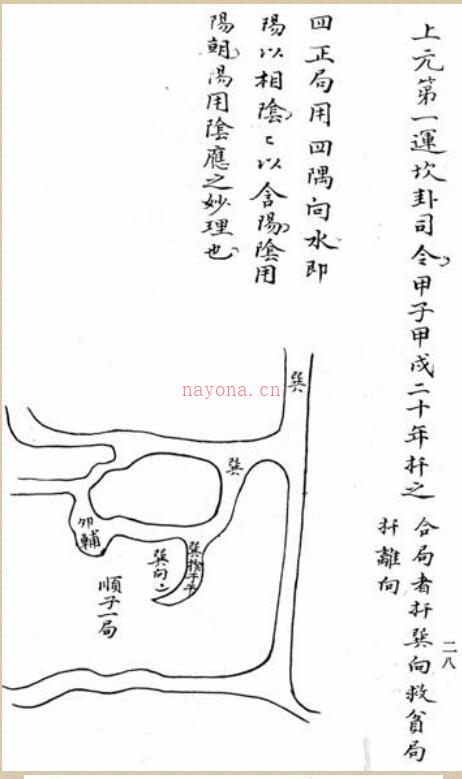 上元第一運坎卦司令甲子甲戌二十年扦之
合局者扦巽向救貧局
扦離向
二八
四正局用四隅向水即
陽以相陰〻以含陽陰用
陽朝陽用陰應之妙理也
巽
nayona.cn
巽
卯輔
巽向
順子一局